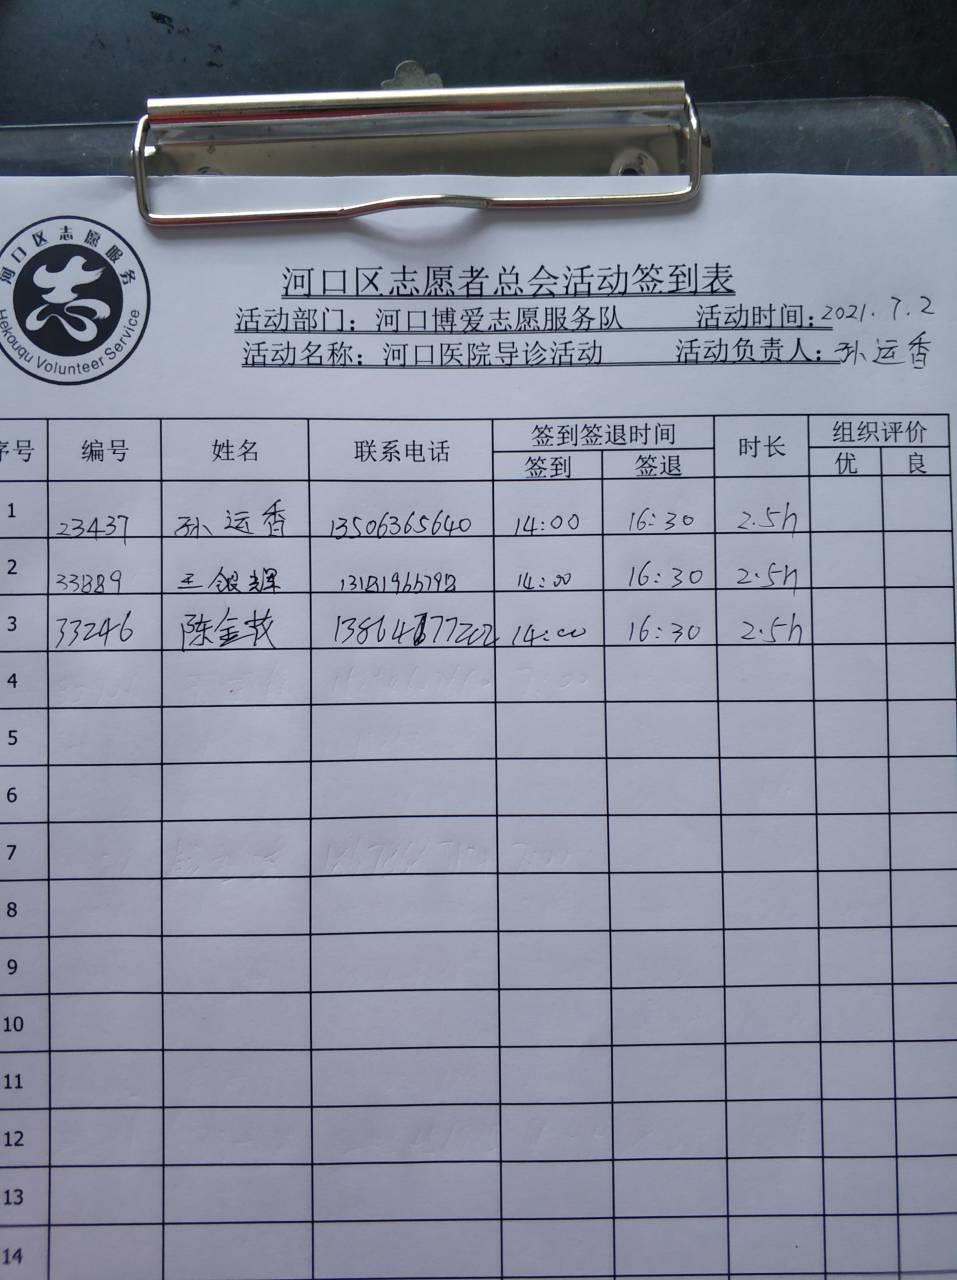 河口区志愿服务
Hekouqu Volunteer Service
河口区志愿者总会活动签到表
活动部门：河口博爱志愿服务队 活动时间：2021.7.2
活动名称：河口医院导诊活动 活动负责人：孙运香
序号 编号 姓名 联系电话 签到签退时间 时长 组织评价
签到 签退 优 良
1 23437 孙运香 13506365640 14:00 16:30 2.5h
2 33889 王银辉 14:00 16:30 2.5h
3 33246 陈金 14:00 16:30 2.5h
4
5
6
7
8
9
10
11
12
13
14